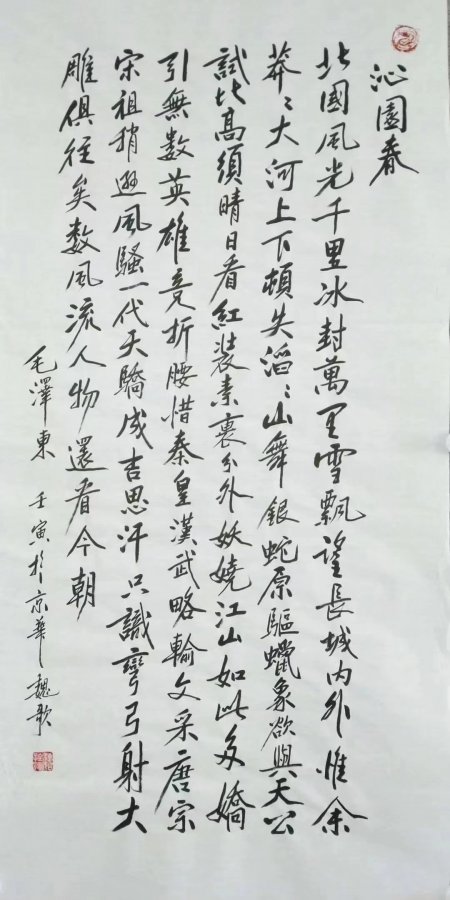 沁園春
北國風光千里冰封萬里雪飄望長城内外惟余
莽〻大河上下頓失滔〻山舞銀蛇原驅蠟象欲與天公
試比高須晴日看紅裝素裹分外妖嬈江山如此多嬌
引無數英雄竞折腰惜秦皇漢武略輸文采唐宗
宋祖稍遜風騷一代天驕成吉思汗只識彎弓射大
雕俱往矣数風流人物還看今朝
毛澤東 壬寅於京華 魏歌